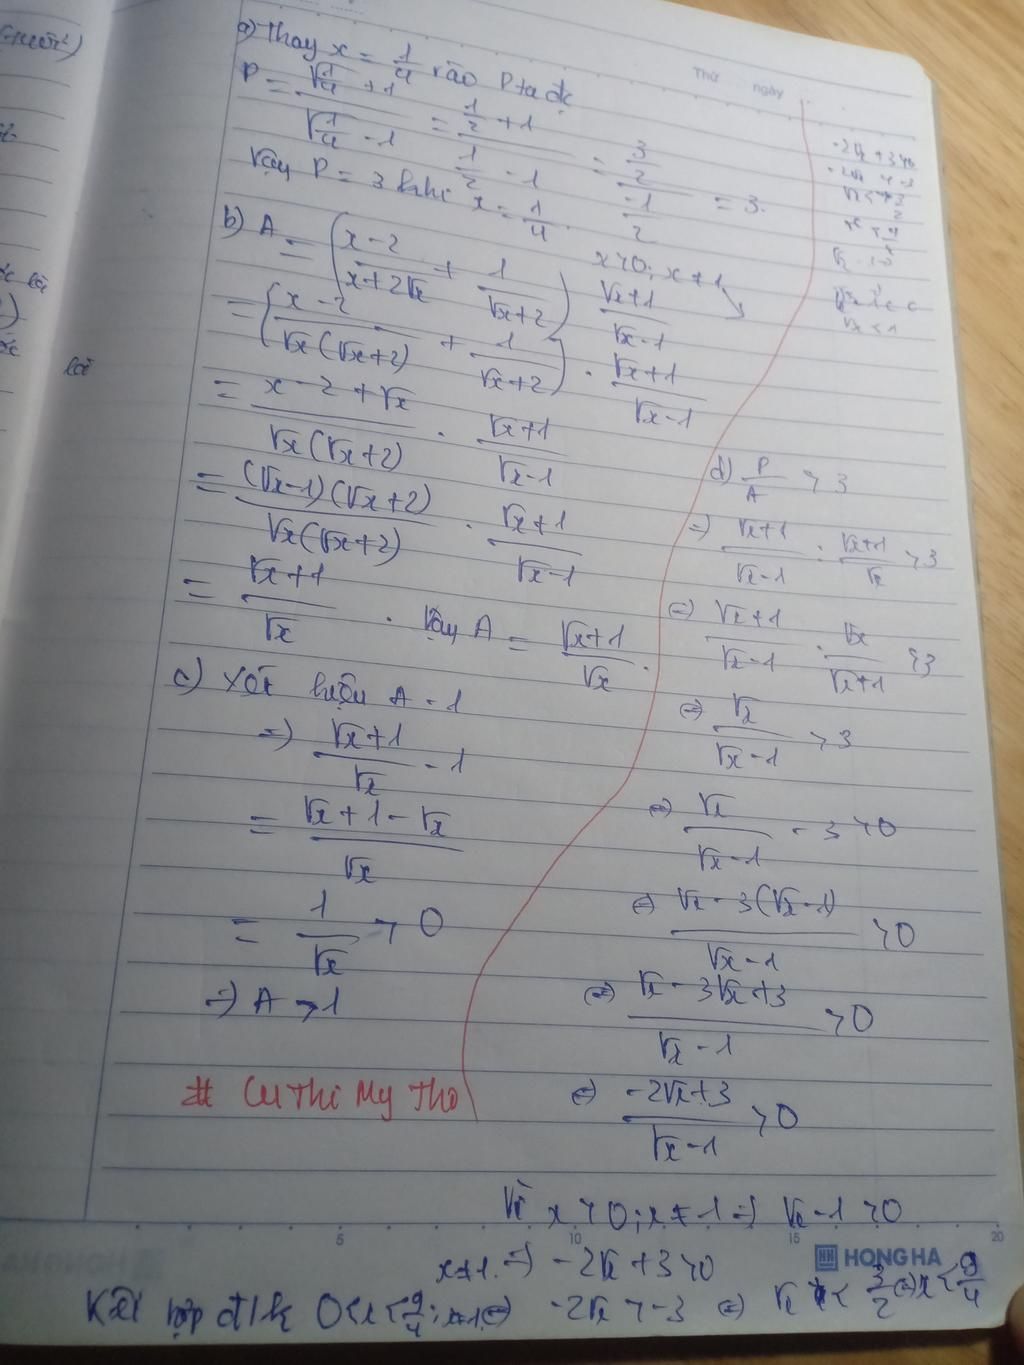 Thứ ngày
a) Thay x = 1/4 vào P ta đc
P = (√(1/4) + 1)/(√(1/4) - 1) = (1/2 + 1)/(1/2 - 1) = (3/2)/(-1/2) = 3.
Vậy P = 3 khi x = 1/4.
b) A = ((x-2)/(x+2√x) + 1/(√x+2)) (√x+1)/(√x-1) x>0; x≠1
= ((x-2)/(√x(√x+2)) + 1/(√x+2)) . (√x+1)/(√x-1)
= (x-2+√x)/(√x(√x+2)) . (√x+1)/(√x-1)
= ((√x-1)(√x+2))/(√x(√x+2)) . (√x+1)/(√x-1)
= (√x+1)/√x . Vậy A = (√x+1)/√x .
c) Xét hiệu A - 1
=) (√x+1)/√x - 1
= (√x+1-√x)/√x
= 1/√x > 0
=) A > 1
# Cu Thi My Tho
d) P/A > 3
=) (√x+1)/(√x-1) : (√x+1)/√x > 3
(=) (√x+1)/(√x-1) . √x/(√x+1) > 3
(=) √x/(√x-1) > 3
(=) √x/(√x-1) - 3 > 0
(=) (√x - 3(√x-1))/(√x-1) > 0
(=) (√x - 3√x + 3)/(√x-1) > 0
(=) (-2√x+3)/(√x-1) > 0
Vì x > 0; x ≠ 1 =) √x - 1 > 0
x≠1. =) -2√x + 3 > 0
Kết hợp đ/k 0<x<9/4; x≠1 (=) -2√x > -3 (=) √x < 3/2 (=) x < 9/4
5 10 15 20
HONG HA